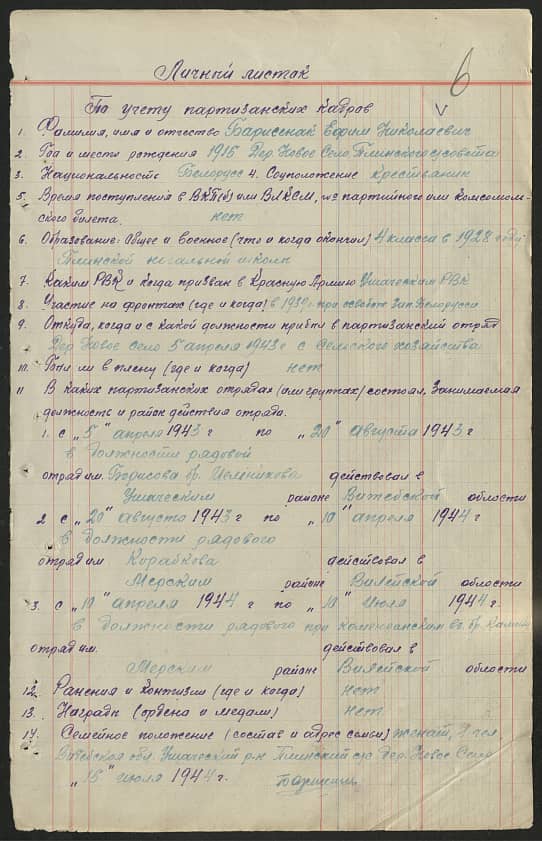 6
Личный листок
По учету партизанских кадров
1. Фамилия, имя и отчество Барисенак Ефим Николаевич
2. Год и место рождения 1915 Дер. Новое Село Плинского с/совета
3. Национальность Белорус 4. Соцположение крестьянин
5. Время поступления в ВКП(б) или ВЛКСМ, № партийного или комсомоль-
ского билета. нет
6. Образование: Общее и военное (что и когда окончил) 4 класса в 1928 году
Плинской начальной школы
7. Каким РВК и когда призван в Красную Армию Ушачским РВК
8. Участие на фронтах (где и когда) в 1939 г. при освобож. Зап. Белорусси
9. Откуда, когда и с какой должности прибыл в партизанский отряд
Дер. Новое село 5 апреля 1943 г с сельского хозяйства
10. Был ли в плену (где и когда) нет
11 В каких партизанских отрядах (или группах) состоял, занимаемая
должность и район действия отряда.
1. с „5" апреля 1943 г по „20" августа 1943 г
в должности рядовой
отряд им. Борисова бр. действовал в
Ушачском районе Витебской области
2 с „20" августа 1943 г по „10" апреля 1944 г
в должности рядового
отряд им Корабкова действовал в
Мерским районе Вилейской области
3. с „10" апреля 1944 г по „10" июля 1944 г.
в должности рядового при бр.
отряд им. действовал в
Мерским районе Вилейской области
12. Ранения и контизии (где и когда) нет
13. Награды (ордена и медали) нет
14. Семейное положение (состав и адрес семьи) женат, чел.
Витебская обл. Ушачский р-н Плинский с/с дер. Новое Село
„16" июля 1944 г.